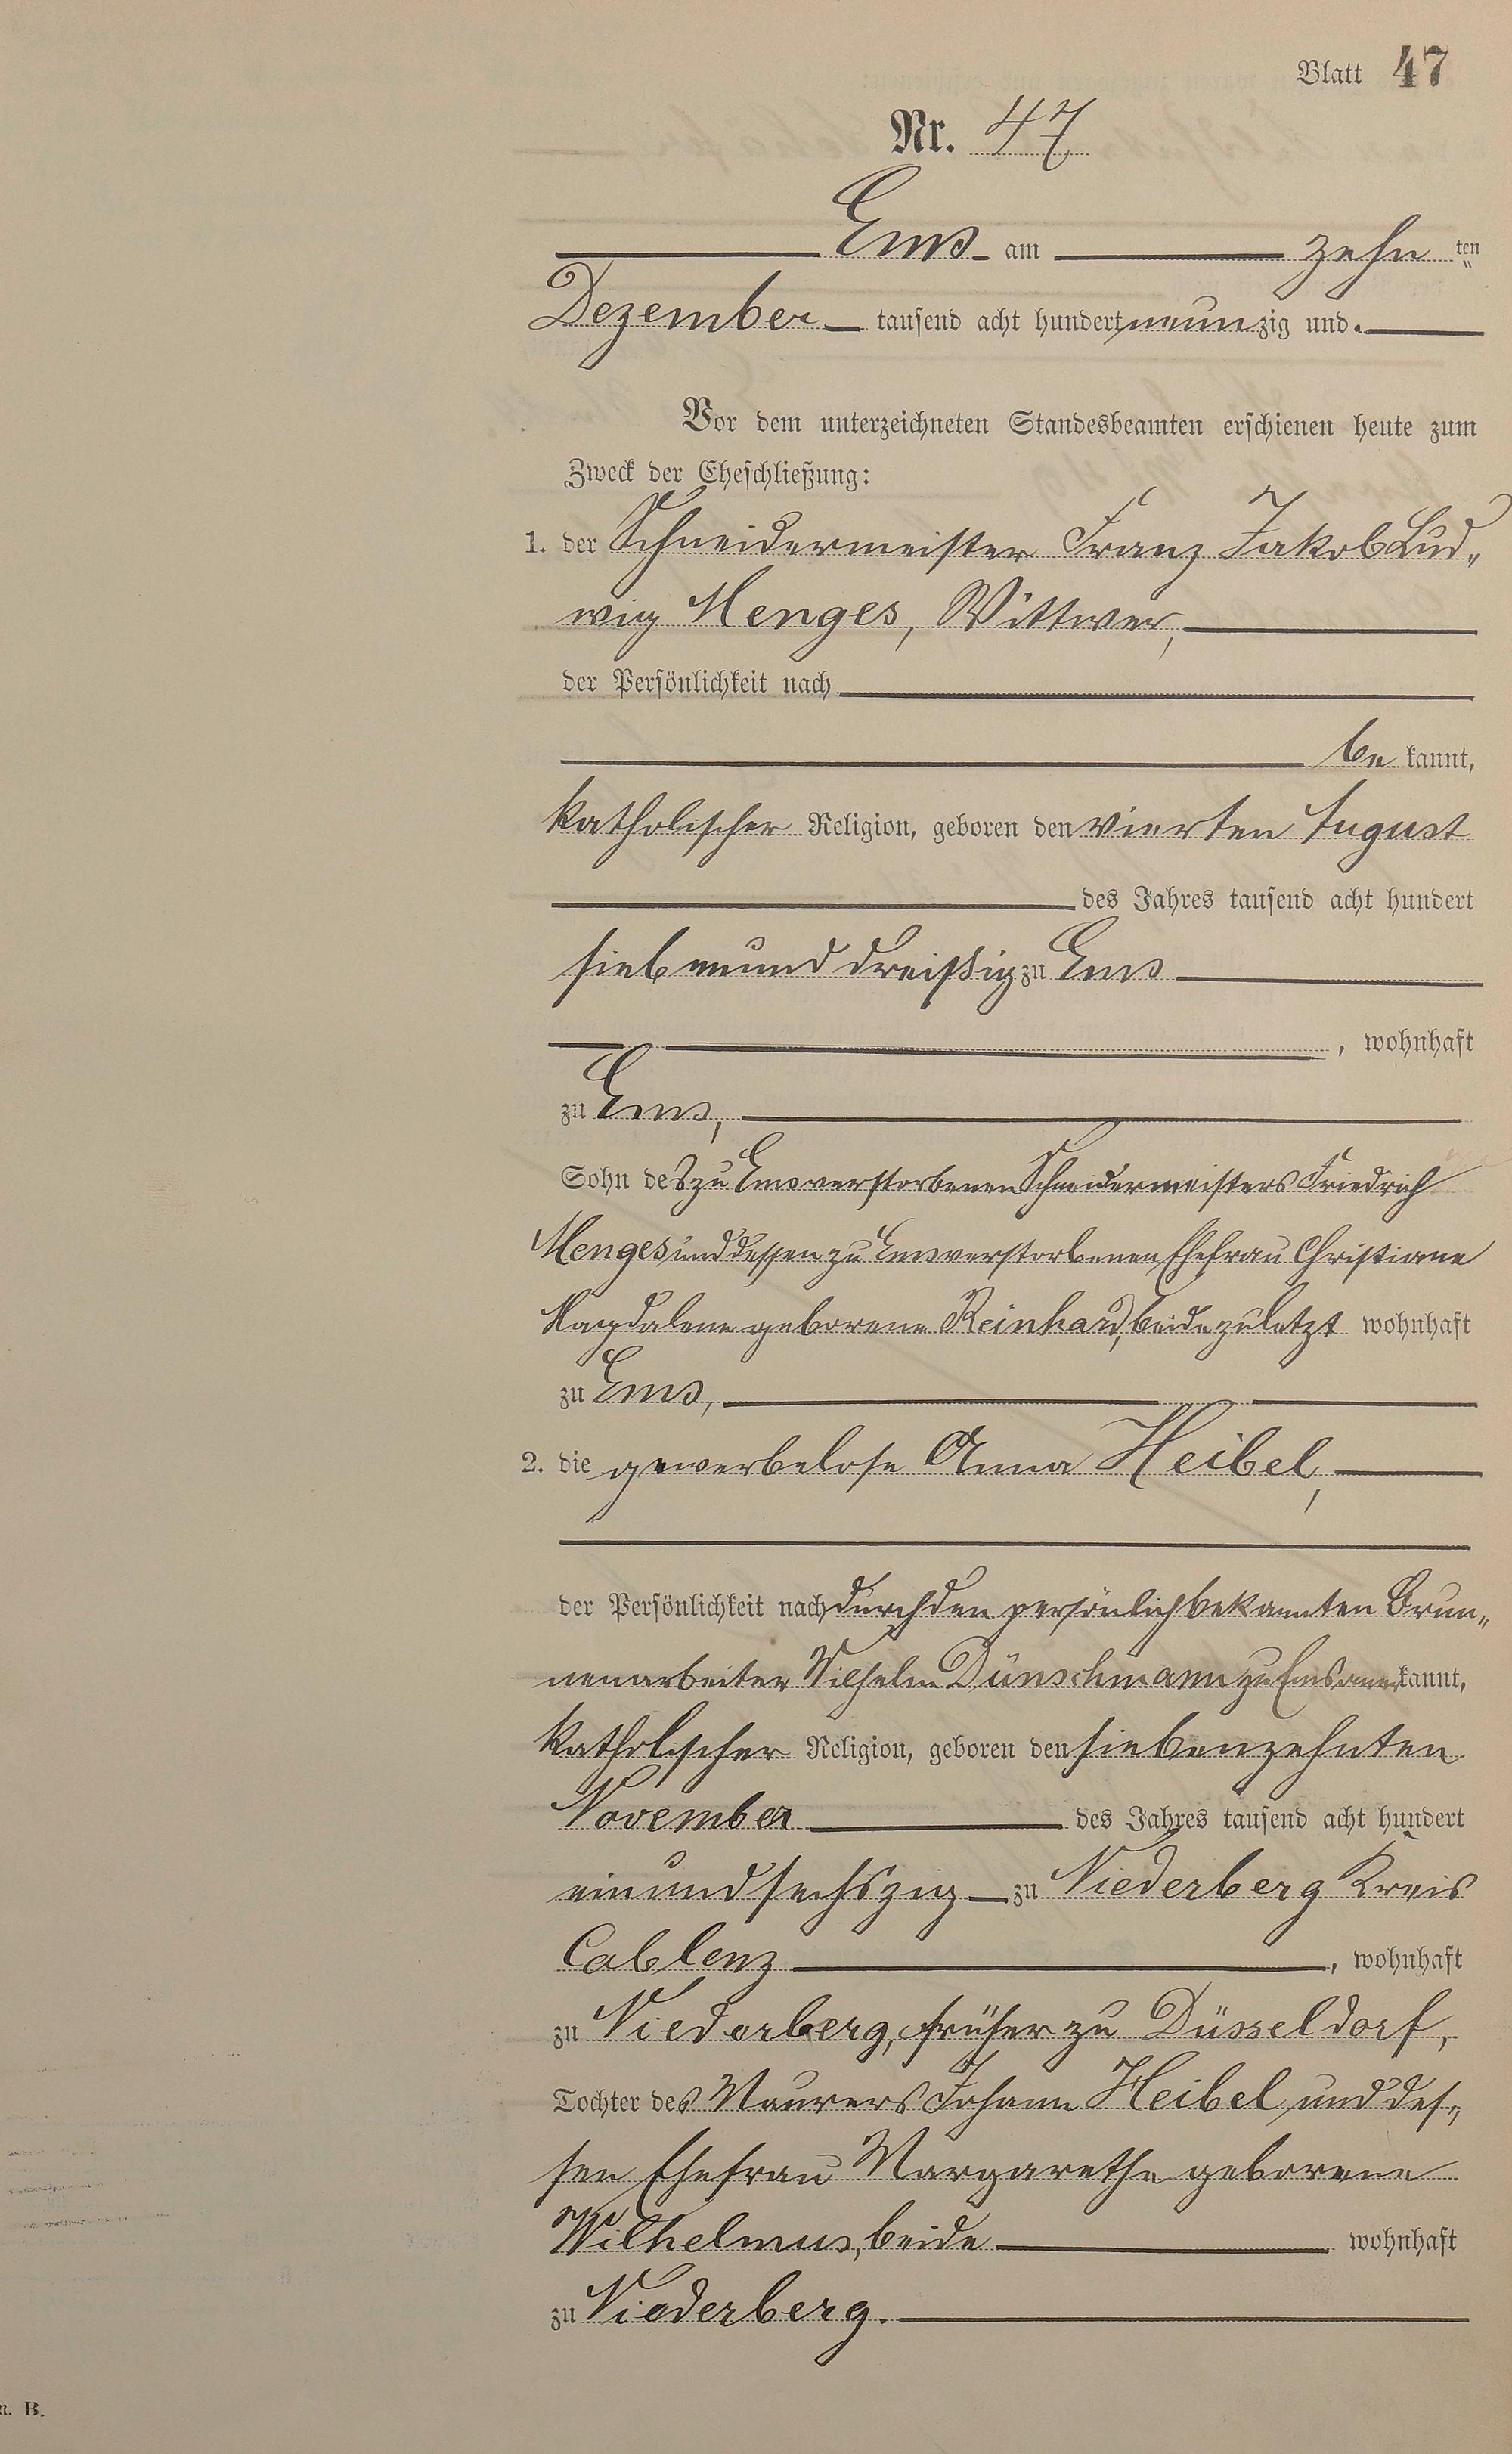 Blatt 47
Nr. 47
Ems am zehn ten
Dezember tausend acht hundert neunzig und
Vor dem unterzeichneten Standesbeamten erschienen heute zum
Zweck der Eheschließung:
1. der Schneidermeister Franz Jakob Lud„
wig Menges, Wittwer,
der Persönlichkeit nach
be kannt,
katholischer Religion, geboren den vierten August
des Jahres tausend acht hundert
siebenunddreißig zu Ems
, wohnhaft
zu Ems,
Sohn des zu Ems verstorbenen Schneidermeisters Friedrich
Menges und dessen zu Ems verstorbenen Ehefrau Christiane
Magdalene geborene Reinhard, beide zuletzt wohnhaft
zu Ems,
2. die gewerbelose Anna Heibel,
der Persönlichkeit nach durch den persönlich bekannten Brun„
nenarbeiter Wilhelm Dünschmann zu Ems anerkannt,
katholischer Religion, geboren den siebenzehnten
November des Jahres tausend acht hundert
einundsechszig zu Niederberg Kreis
Coblenz, wohnhaft
zu Niederberg, früher zu Düsseldorf,
Tochter des Maurers Johann Heibel und des„
sen Ehefrau Margarethe geborene
Wilhelmus, beide wohnhaft
zu Niederberg.
n. B.